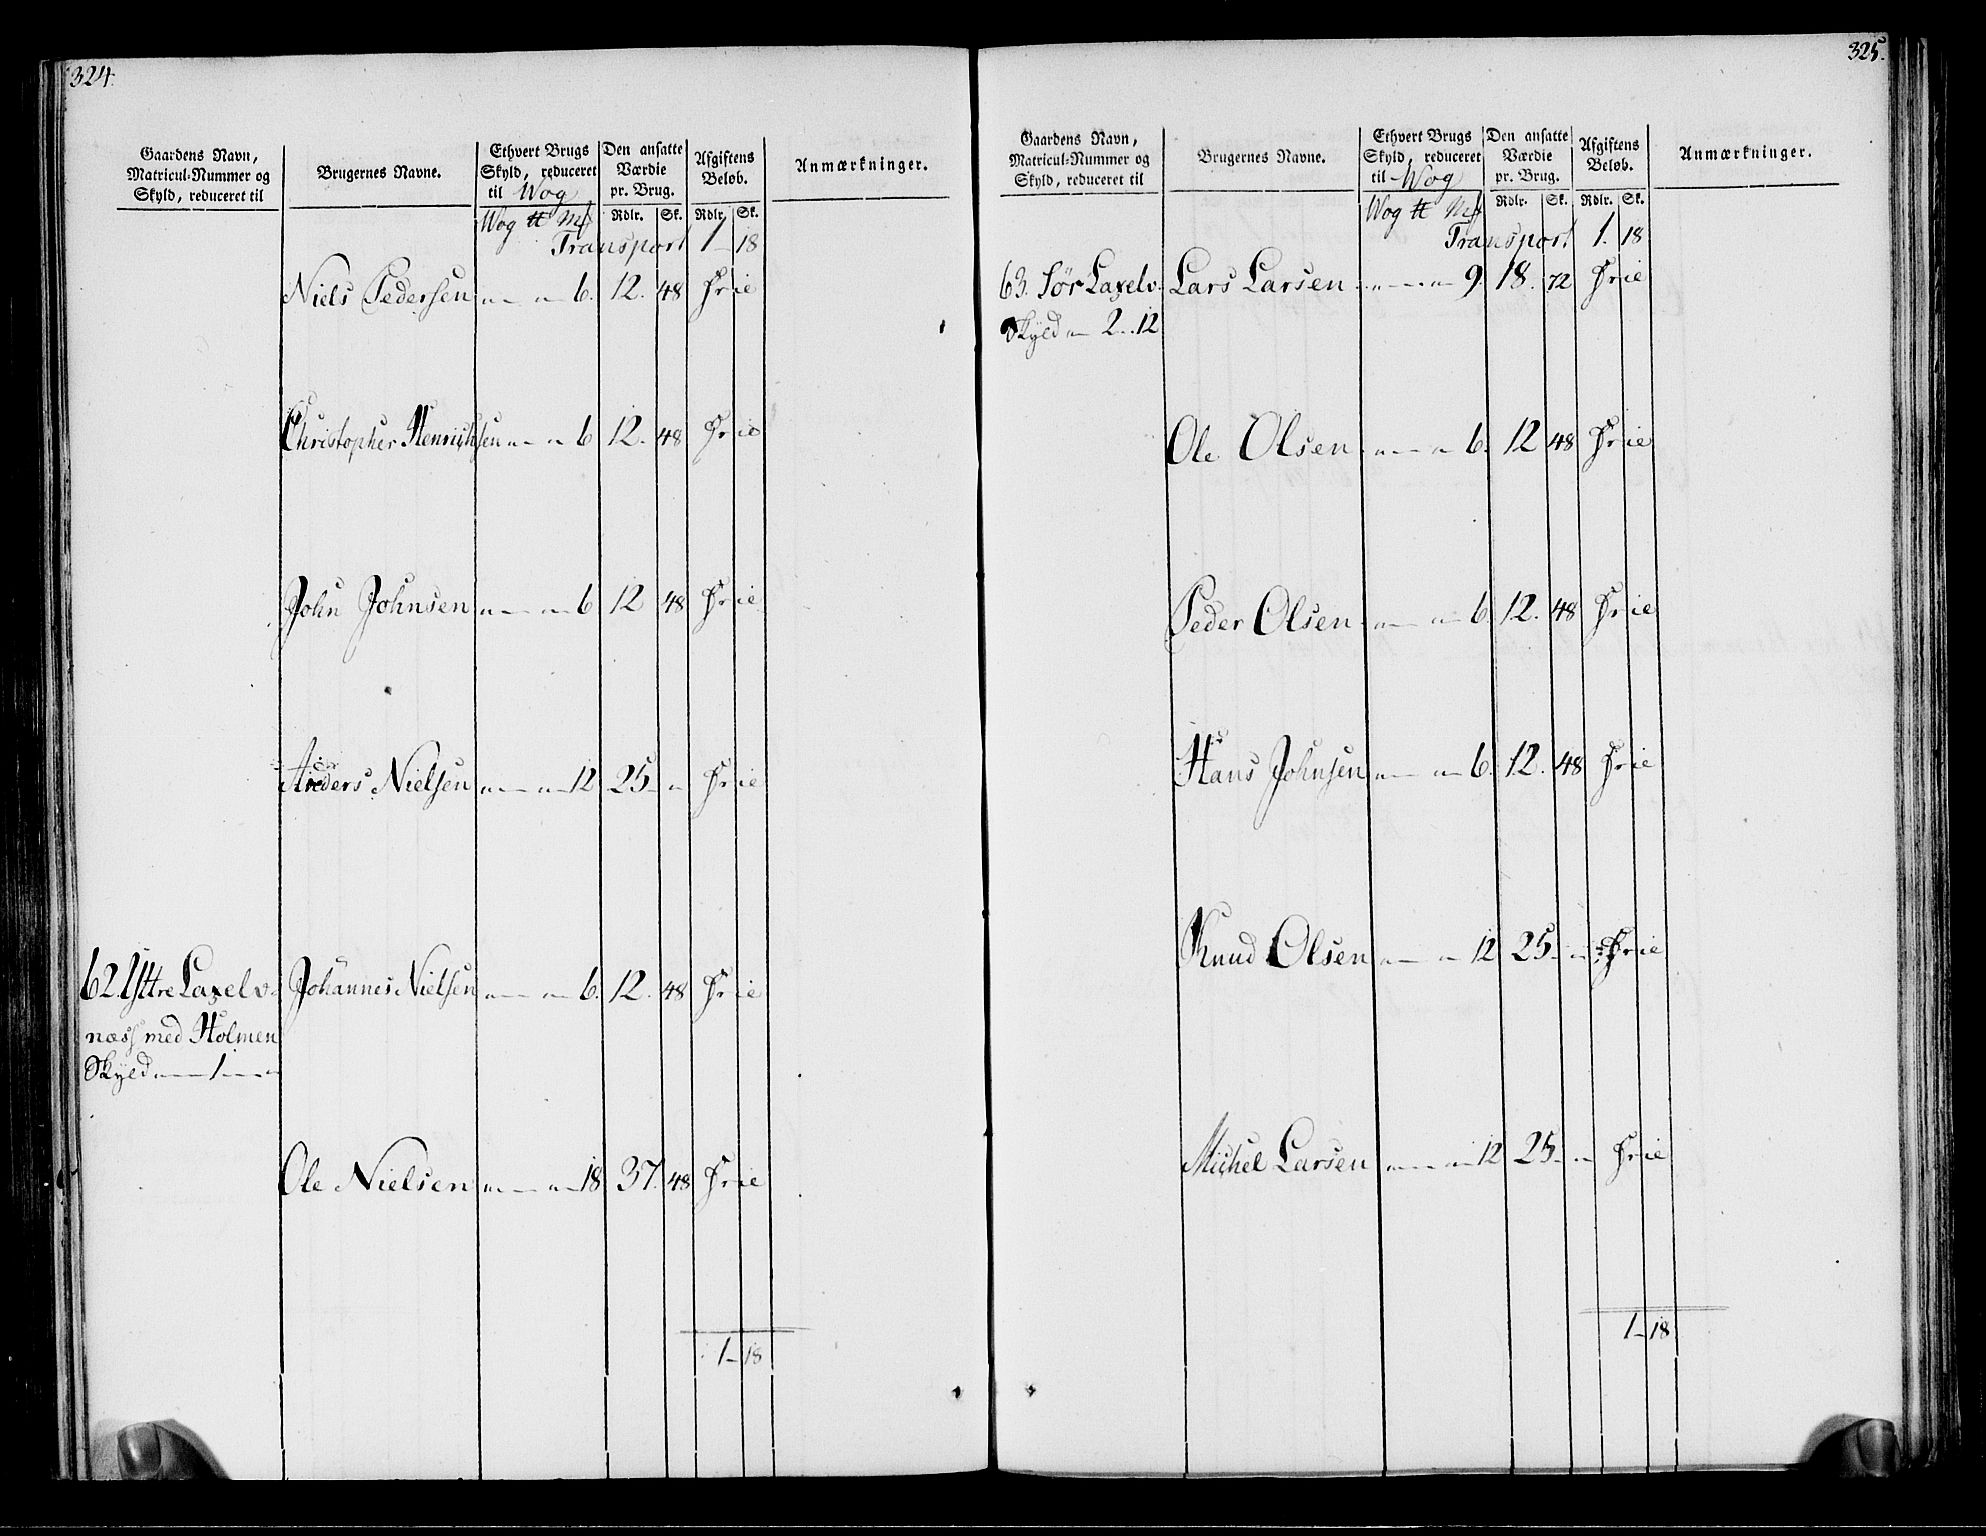 324.
Gaardens Navn, Matricul-Nummer og Skyld, reduceret til
Brugernes Navne.
Ethvert Brugs Skyld, reduceret til Wog
Den ansatte Værdie pr. Brug.
Afgiftens Beløb.
Anmærkninger.
Wog ℔ Mk Rdlr. Sk. Rdlr. Sk.
Transport 1 - 18
Niels Pedersen „ — „ 6. 12. 48 Frie
Christopher Henrichsen „ — „ 6 12. 48 Frie
John Johnsen „ — „ 6 12 48 Frie
Anders Nielsen „ — „ 12 25 - „ Frie
62. Yttre Laxelv- Johannes Nielsen „ — „ 6. 12. 48 Frie
næss med Holmen
Skyld „ — 1 — „
Ole Nielsen „ — „ 18 37. 48 Frie
1 - 18
325.
Gaardens Navn, Matricul-Nummer og Skyld, reduceret til
Brugernes Navne.
Ethvert Brugs Skyld, reduceret til Wog
Den ansatte Værdie pr. Brug.
Afgiftens Beløb.
Anmærkninger.
Wog ℔ Mk Rdlr. Sk. Rdlr. Sk.
Transport 1. 18
63. Sør Laxelv. Lars Larsen „ — „ 9. 18. 72 Frie
Skyld „ 2 .. 12
Ole Olsen „ — „ 6. 12 48 Frie
Peder Olsen „ — „ 6. 12. 48 Frie
Hans Johnsen „ — „ 6. 12. 48 Frie
Knud Olsen „ — „ 12 25 - „ Frie
Michel Larsen „ — „ 12 25 - „ Frie
1 - 18